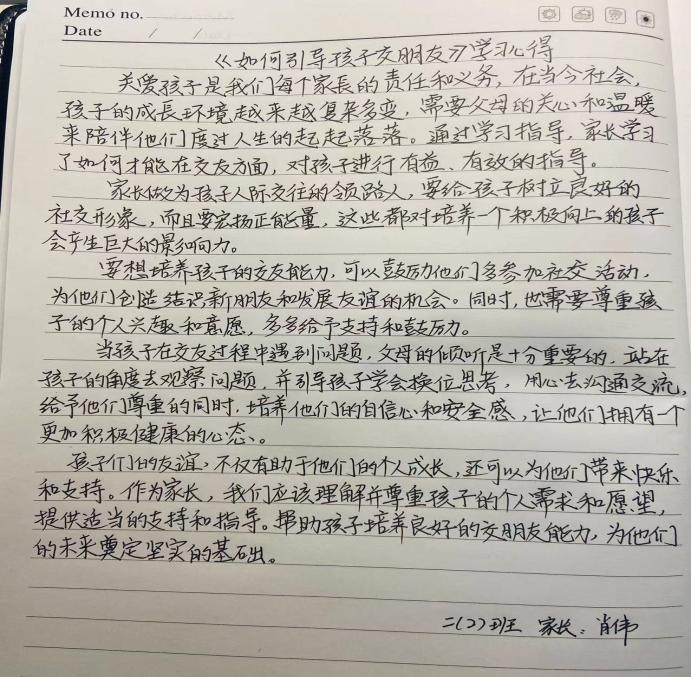 Memo no.
Date / /
《如何引导孩子交朋友》学习心得
关爱孩子是我们每个家長的责任和义务，在当今社会，
孩子的成長环境越来越复杂多变，需要父母的关心和温暖
来陪伴他们度过人生的起起落落。通过学习指导，家长学习
了如何才能在交友方面，对孩子进行有益、有效的指导。
家长做为孩子人际交往的领路人，要给孩子树立良好的
社交形象，而且要宏扬正能量，这些都对培养一个积极向上的孩子
会产生巨大的影响力。
要想培养孩子的交友能力，可以鼓励他们多参加社交活动，
为他们创造结识新朋友和发展友谊的机会。同时，也需要尊重孩
子的个人兴趣和意愿，多多给予支持和鼓励。
当孩子在交友过程中遇到问题，父母的倾听是十分重要的，站在
孩子的角度去观察问题，并引导孩子学会换位思考，用心去沟通交流，
给予他们尊重的同时，培养他们的自信心和安全感，让他们拥有一个
更加积极健康的心态。
孩子们的友谊，不仅有助于他们的个人成长，还可以为他们带来快乐
和支持。作为家长，我们应该理解并尊重孩子的个人需求和愿望，
提供适当的支持和指导。帮助孩子培养良好的交朋友能力，为他们
的未来奠定坚实的基础。
二（2）班 家长：肖伟